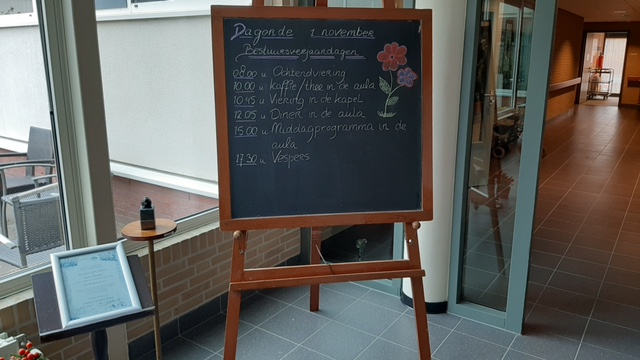 Dagorde 1 november
Bestuursverjaardagen
08.00 u Ochtendviering
10.00 u Koffie/thee in de aula
10.45 u Viering in de kapel
12.05 u Diner in de aula
15.00 u Middagprogramma in de
aula
17.30 u Vespers